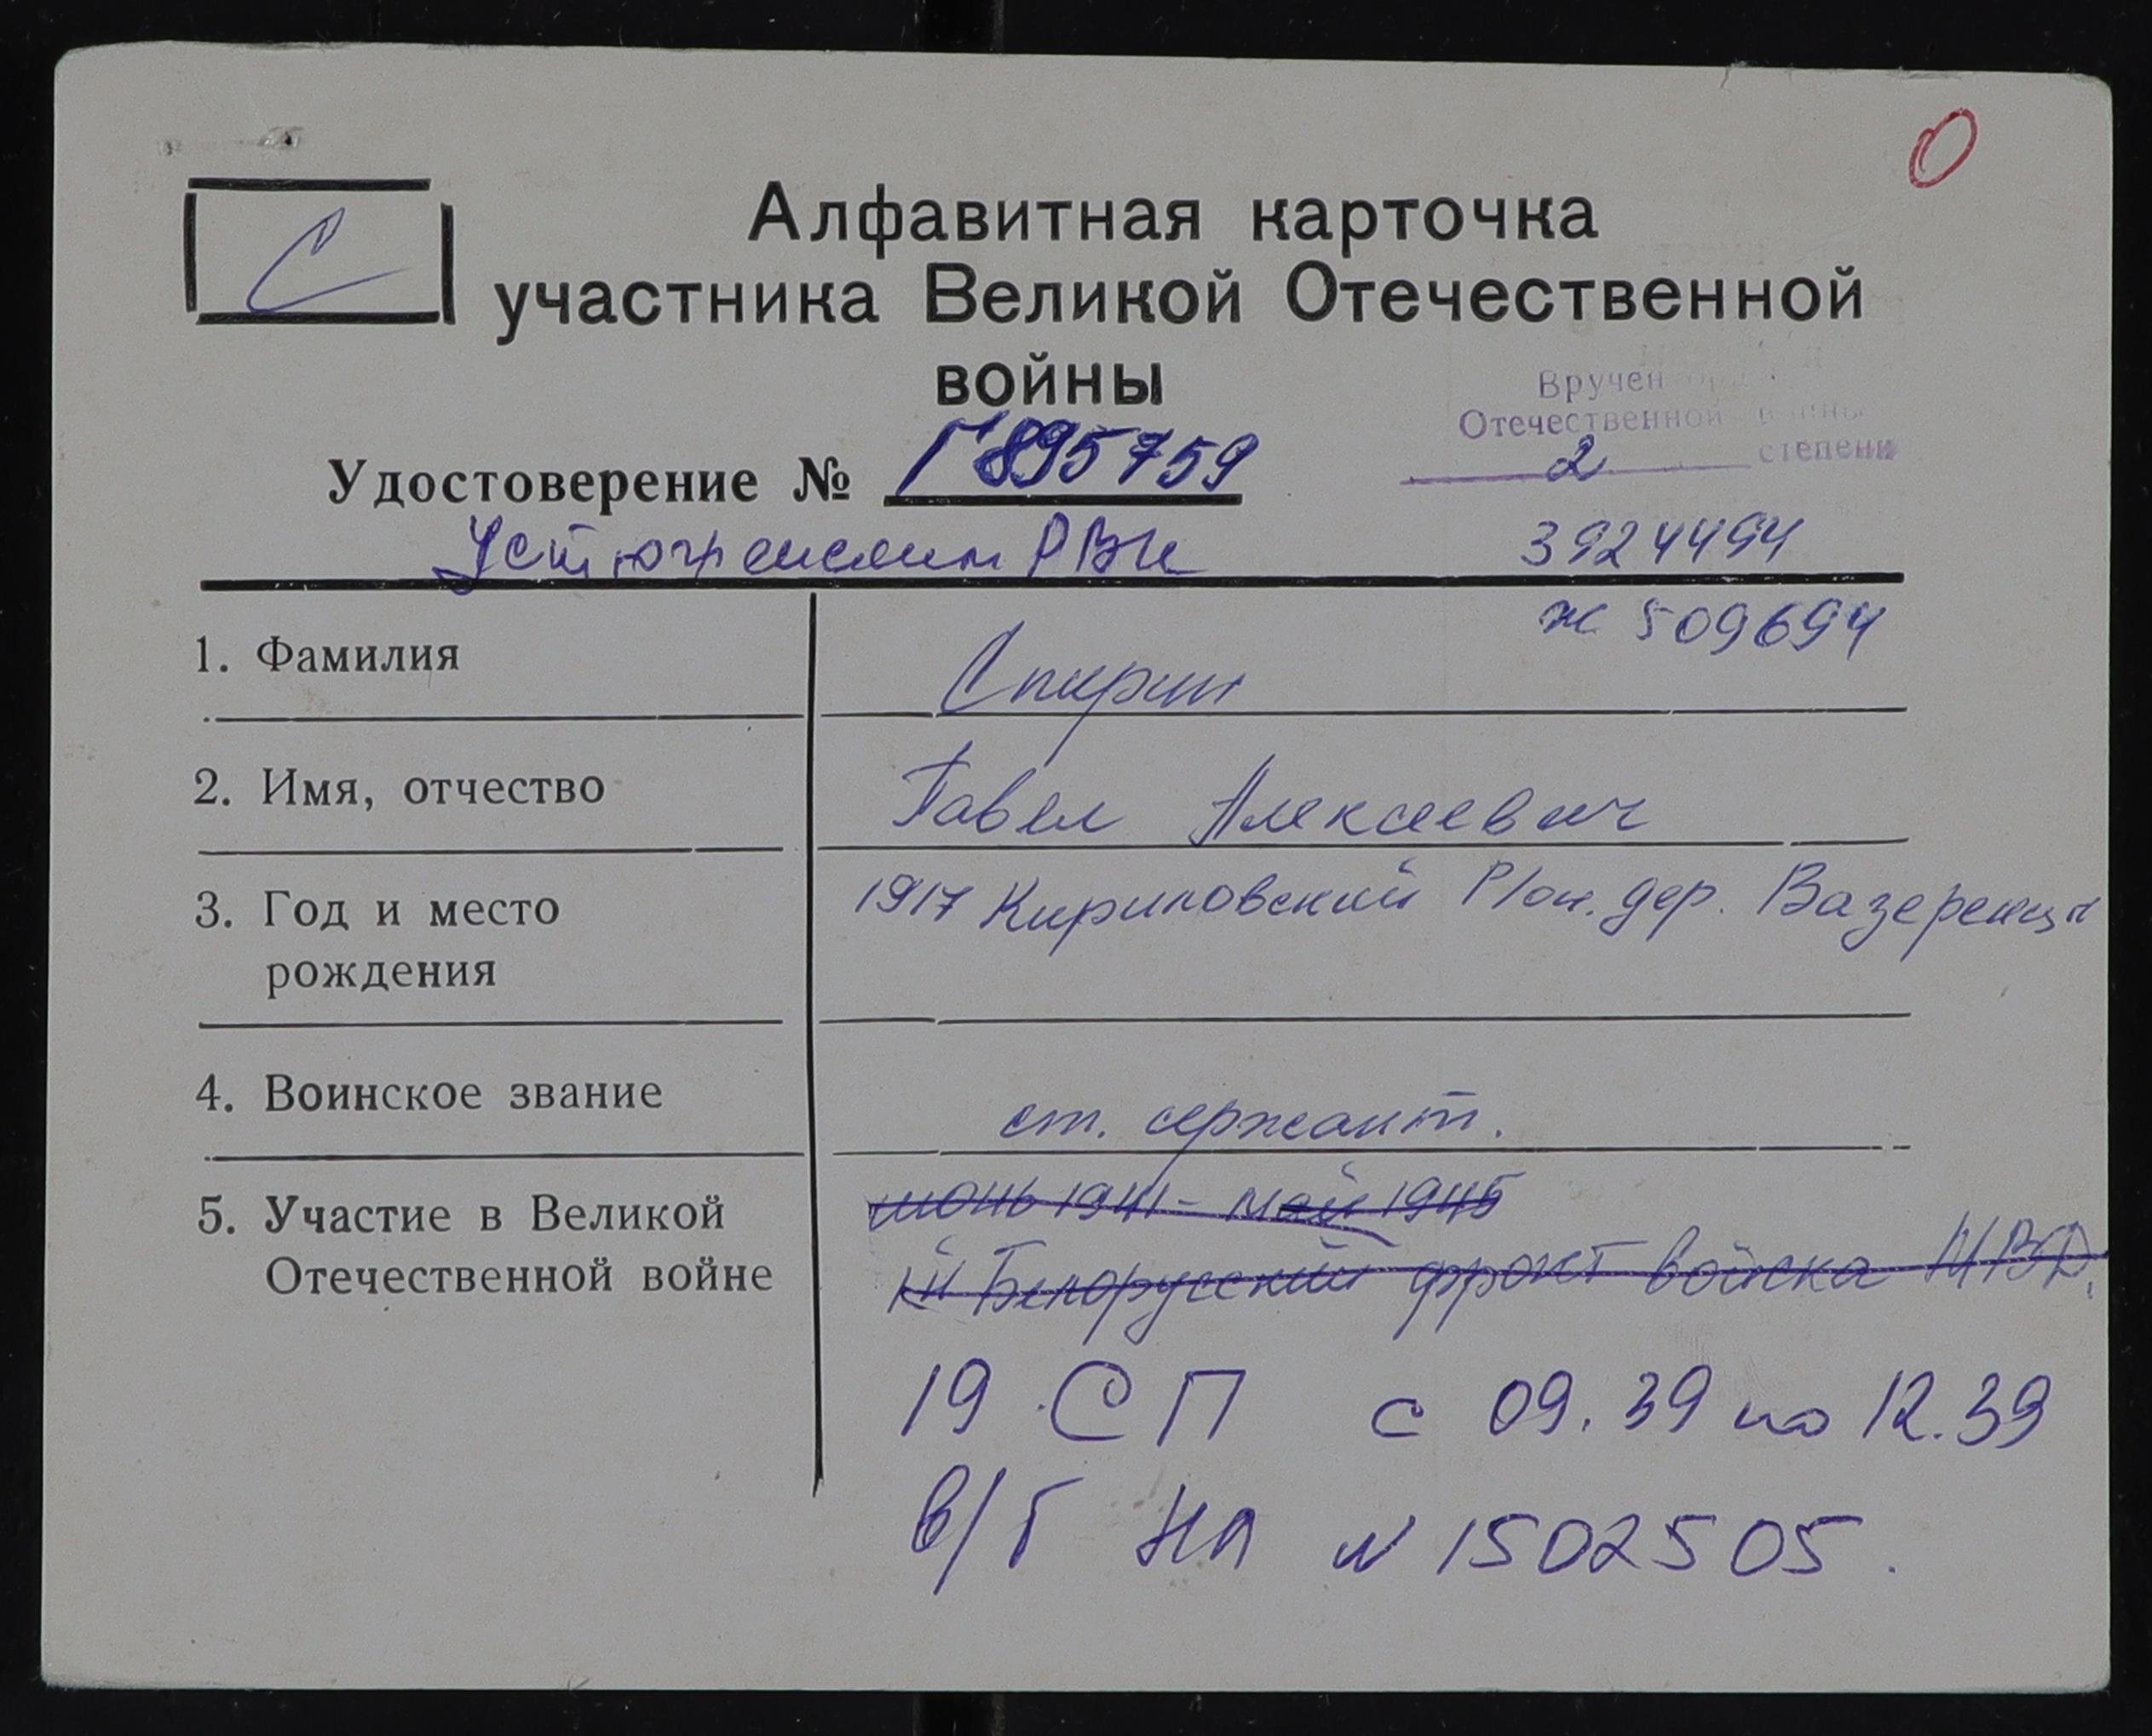 О
С
Алфавитная карточка
участника Великой Отечественной
войны
Вручен
Отечественной войны
2 степени
Удостоверение № Г 895759
Устюженским РВК 3924494
1. Фамилия
Ж 509694
Спирин
2. Имя, отчество
Павел Алексеевич
3. Год и место
рождения
1917 Кирилловский р/он. дер.
4. Воинское звание
ст. сержант.
5. Участие в Великой
Отечественной войне
июнь 1941 - май 1945
Белорусский фронт войска МВД.
19 СП с 09.39 по 12.39
в/б НП № 1502505.